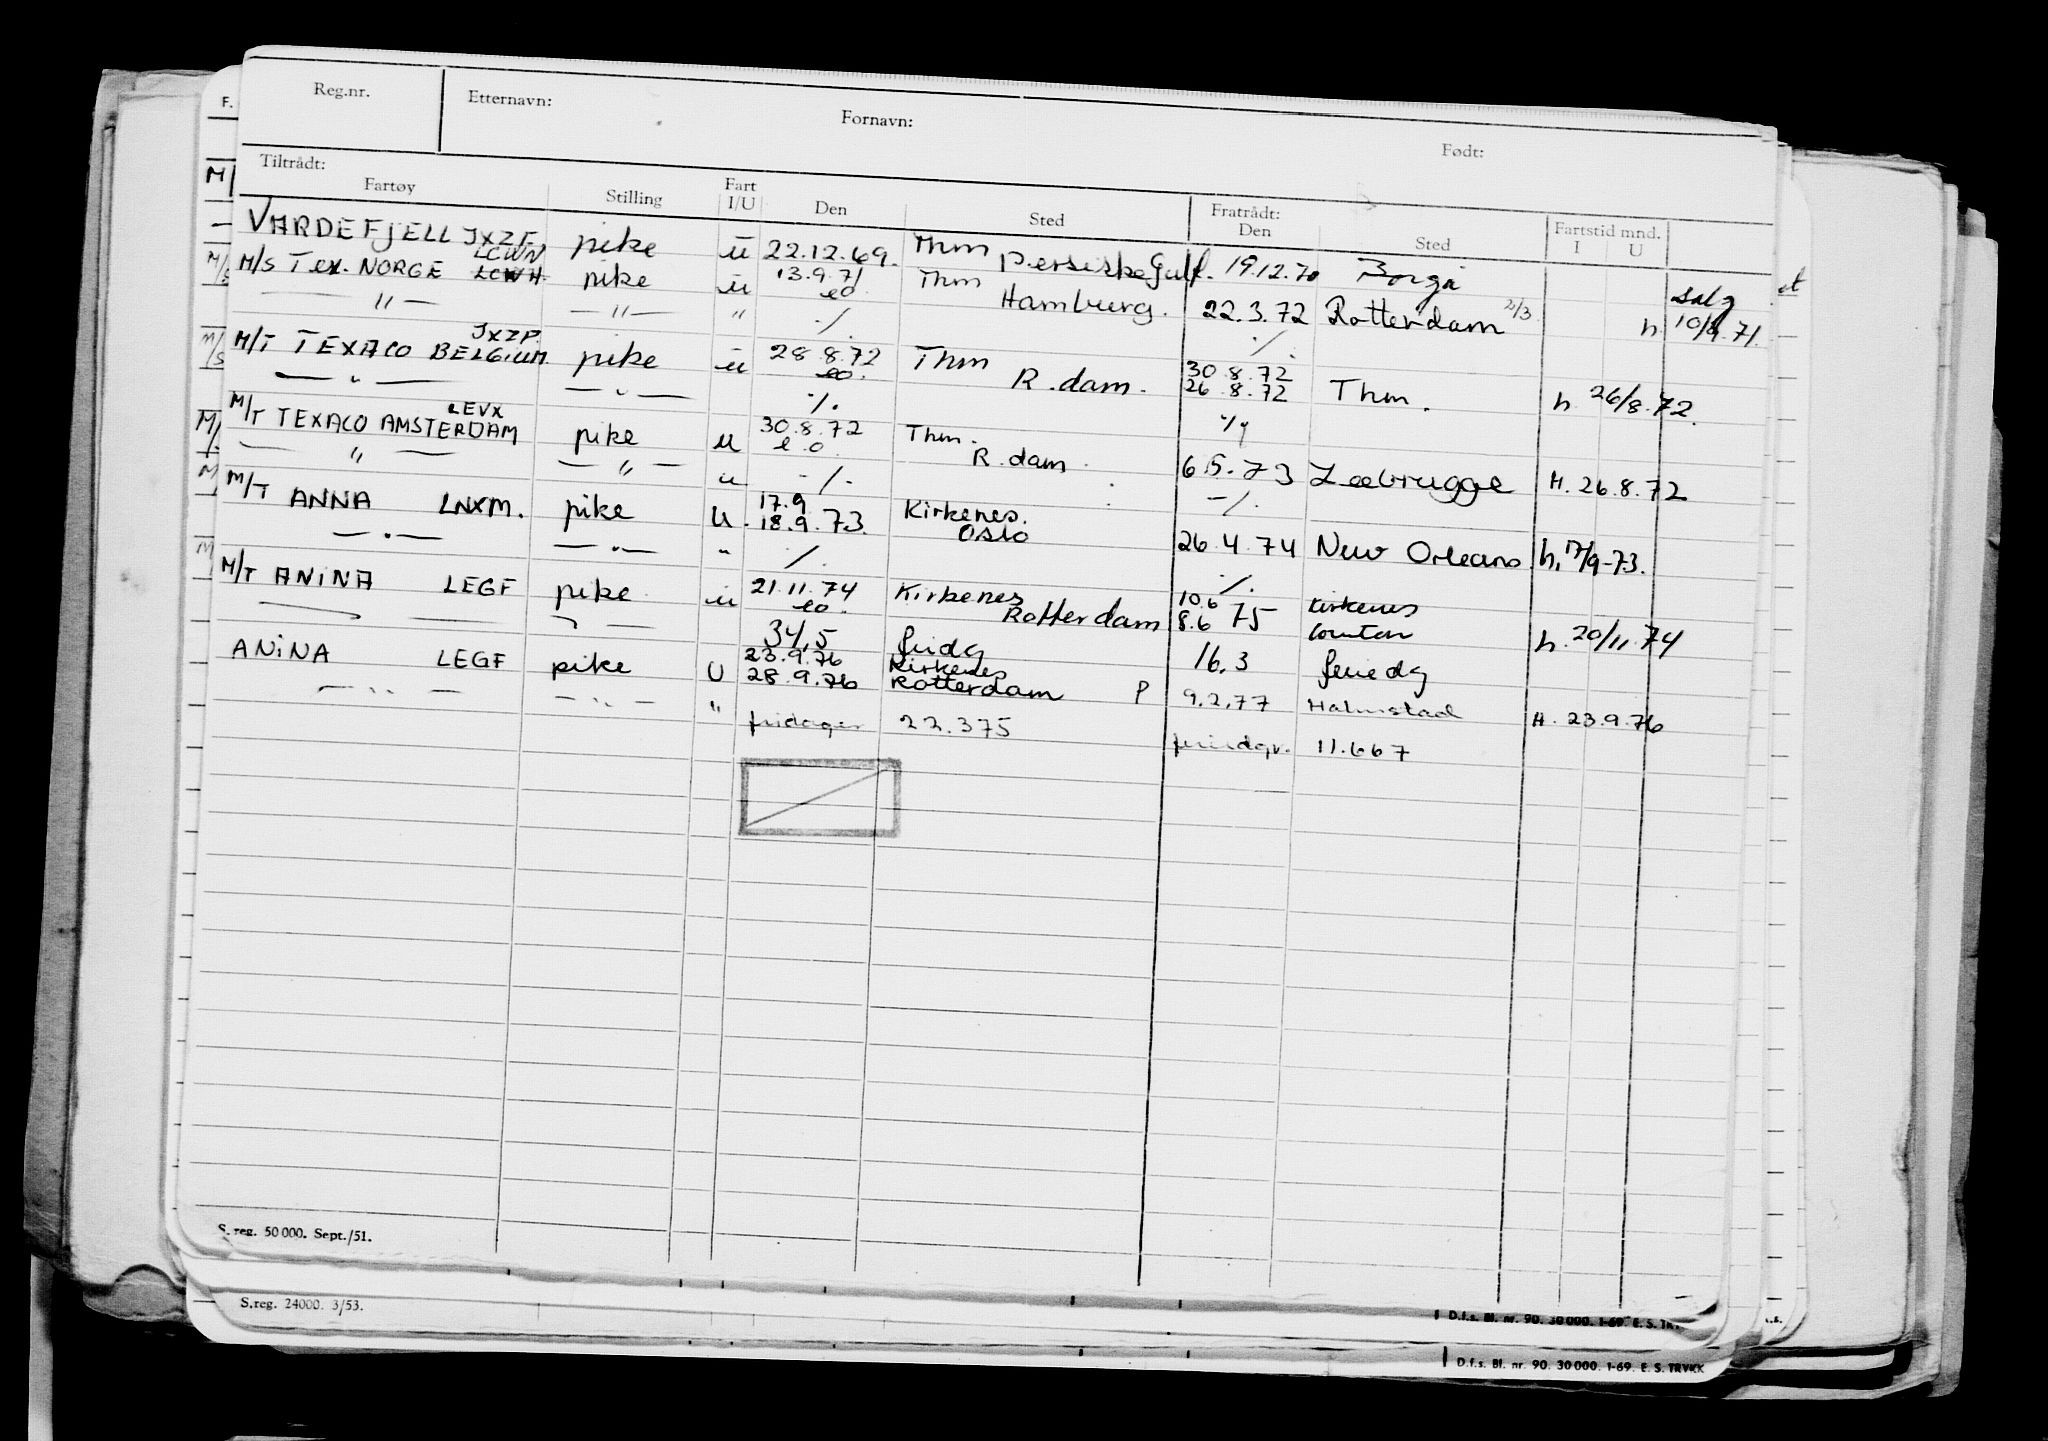 Reg.nr. Etternavn: Fornavn: Født:
Tiltrådt: Fratrådt:
Fartøy Stilling Fart I/U Den Sted Den Sted Fartstid mnd. I U
VARDEFJELL JXZF pike ü 22.12.69. Thm Persiske Gulf. 19.12.70 Borgå salg
LCWN
M/S Tex. NORGE LCWH pike ü 13.9.71 Thm
eo Hamburg. 22.3.72 Rotterdam 2/3 h 10/9.71.
— " — — " — " ·/.
JXZP.
M/T TEXACO BELGIUM pike ü 28.8.72 Thm ·/.
eo. R.dam. 30.8.72
26.8.72 Thm. h. 26/8.72.
— " — — " — ·/.
LEVX
M/T TEXACO AMSTERDAM pike u 30.8.72 Thm.
e.o. R.dam 6.5.73 Zeebrugge H. 26.8.72
— " — — " — " -/.
M/T ANNA LNXM. pike U. 17.9 Kirkenes. -/.
18.9.73. Oslo 26.4.74 New Orleans h. 17/9-73.
— " — — " — " ·/.
M/T ANINA LEGF pike ü 21.11.74 Kirkenes ·/.
eo. Rotterdam 10.6 Kirkenes
8.6 75 h. 20/11.74
34,5 fridg 16,3 feriedg
ANINA LEGF pike U 23.9.76 Kirkenes
28.9.76 Rotterdam P 9.2.77 Halmstad H. 23.9.76
— " — — " — "
fridager 22.375 feriedgr. 11.667
S. reg. 50 000. Sept./51.
S.reg. 24000. 3/53.
D.f.s. Bl. nr. 90. 30 000. 1-69. E. S. TR
D.f.s. Bl. nr. 90. 30 000. 1-69. E. S. TRYKK